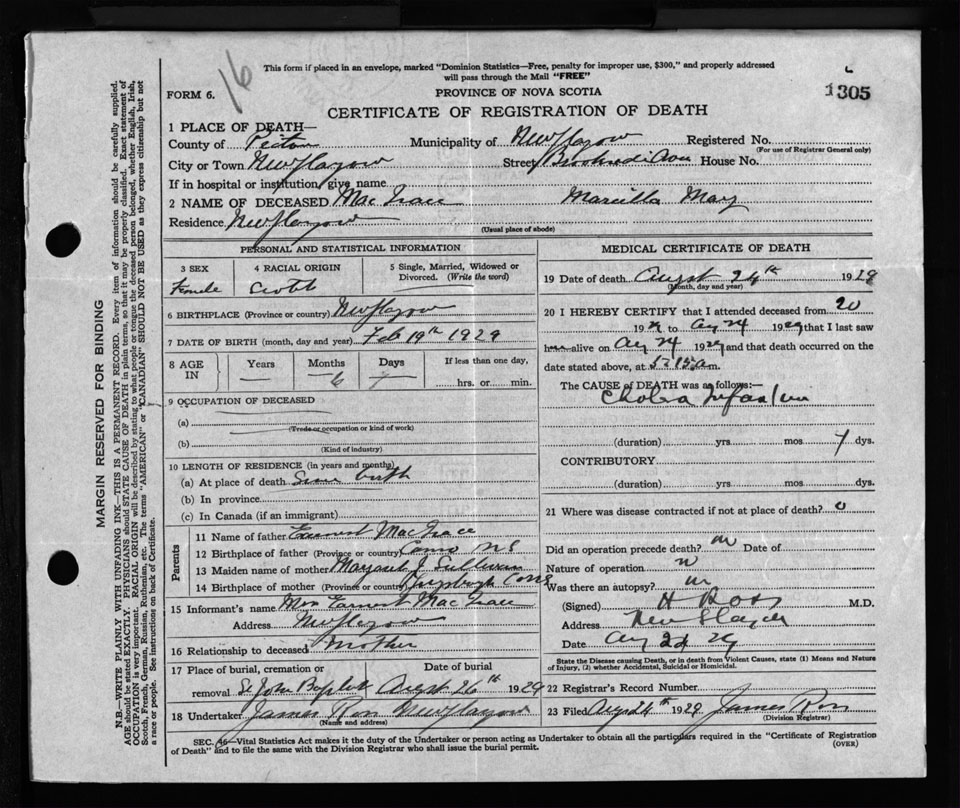 16
This form if placed in an envelope, marked "Dominion Statistics—Free, penalty for improper use, $300," and properly addressed
will pass through the Mail "FREE"
FORM 6.
PROVINCE OF NOVA SCOTIA
1305
CERTIFICATE OF REGISTRATION OF DEATH
1 PLACE OF DEATH—
County of Pictou Municipality of New Glasgow Registered No.
(For use of Registrar General only)
City or Town New Glasgow Street House No.
If in hospital or institution, give name
2 NAME OF DECEASED Mary
Residence New Glasgow
(Usual place of abode)
PERSONAL AND STATISTICAL INFORMATION
3 SEX 4 RACIAL ORIGIN 5 Single, Married, Widowed or
Divorced. (Write the word)
Female
6 BIRTHPLACE (Province or country) New Glasgow
7 DATE OF BIRTH (month, day and year) Feb 19th 1929
8 AGE IN Years Months Days If less than one day,
— 6 hrs. or min.
9 OCCUPATION OF DECEASED
(a)
(Trade or occupation or kind of work)
(b)
(Kind of industry)
10 LENGTH OF RESIDENCE (in years and months)
(a) At place of death Since birth
(b) In province
(c) In Canada (if an immigrant)
Parents
11 Name of father
12 Birthplace of father (Province or country) NS
13 Maiden name of mother Margaret J Sullivan
14 Birthplace of mother (Province or country)
15 Informant's name Mrs
Address New Glasgow
16 Relationship to deceased Mother
17 Place of burial, cremation or Date of burial
removal St John Baptist August 26th 1929
18 Undertaker James Ross New Glasgow
(Name and address)
MEDICAL CERTIFICATE OF DEATH
19 Date of death August 24th 1929
(Month, day and year)
20 I HEREBY CERTIFY that I attended deceased from 20
19 to Aug 24 1929 that I last saw
alive on Aug 24 1929 and that death occurred on
the date stated above, at 5.15 a m.
The CAUSE OF DEATH was as follows:—
Cholera Infantum
(duration) yrs mos dys.
CONTRIBUTORY
(duration) yrs mos dys.
21 Where was disease contracted if not at place of death?
Did an operation precede death? Date of
Nature of operation
Was there an autopsy?
(Signed) H Ross M.D.
Address New Glasgow
Date Aug 24 29
State the Disease causing Death, or in death from Violent Causes, state (1) Means and Nature
of Injury, (2) whether Accidental, Suicidal or Homicidal.
22 Registrar's Record Number
23 Filed Augs 24th 1929 James Ross
(Division Registrar)
SEC. 46—Vital Statistics Act makes it the duty of the Undertaker or person acting as Undertaker to obtain all the particulars required in the "Certificate of Registration
of Death" and to file the same with the Division Registrar who shall issue the burial permit.
(OVER)
MARGIN RESERVED FOR BINDING
N.B.—WRITE PLAINLY WITH UNFADING INK—THIS IS A PERMANENT RECORD. Every item of information should be carefully supplied.
AGE should be stated EXACTLY. PHYSICIANS should STATE CAUSE OF DEATH in plain terms, so that it may be properly classified. Exact statement of
OCCUPATION is very important. RACIAL ORIGIN will be described by stating to what people or tongue the deceased person belonged, whether English, Irish,
Scotch, French, German, Russian, Ruthenian, etc. The terms "AMERICAN" or "CANADIAN" SHOULD NOT BE USED as they express citizenship but not
a race or people. See instructions on back of Certificate.